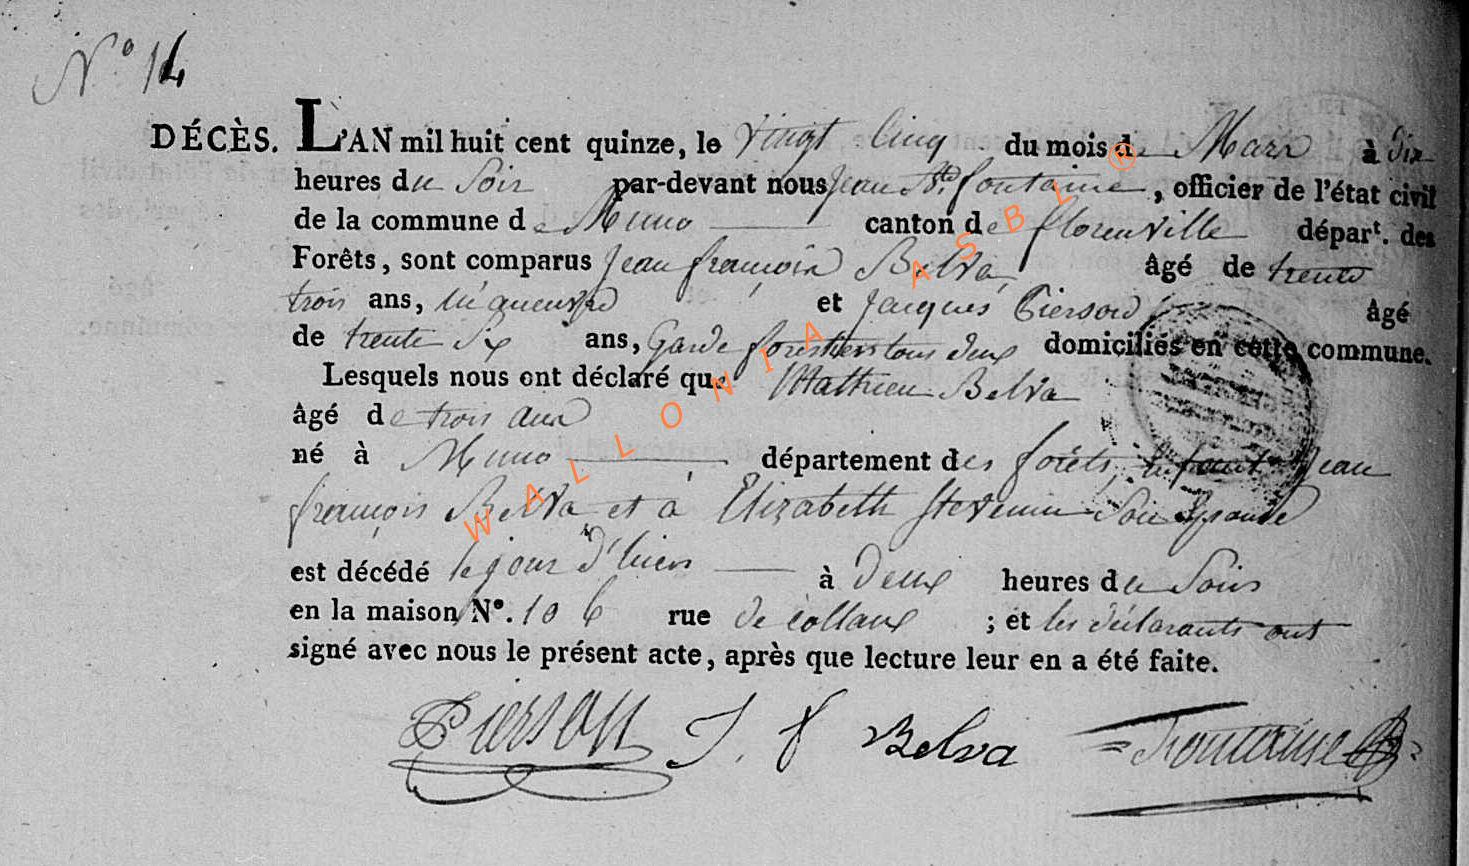 N.° 14
DÉCÈS. L'AN mil huit cent quinze, le vingt cinq du mois de Mars à dix
heures du Soir par-devant nous Jean Bte. fontaine, officier de l'état civil
de la commune de Muno canton de florenville départ. des
Forêts, sont comparus Jean françois Belva, âgé de trente
trois ans, et Jacques Pierson, âgé
de trente Six ans, Garde forestiers tous deux domiciliés en cette commune.
Lesquels nous ont déclaré que Mathieu Belva
âgé de trois ans
né à Muno département des forêts, Jean
françois Belva et à Elizabeth Stevenin Son Epouse
est décédé le jour d'hier à deux heures du Soir
en la maison N°. 106 rue de collaux ; et les déclarants ont
signé avec nous le présent acte, après que lecture leur en a été faite.
Pierson J. f Belva fontaine
WALLONIA ASBL ®